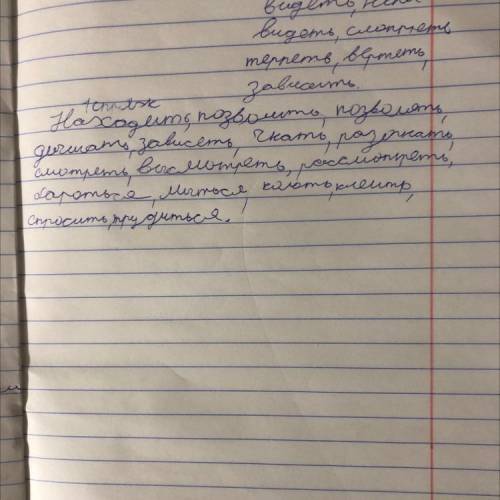 видеть, нена
видеть, смотреть
терпеть, вертеть,
зависеть.
1 спряж
Находить, позволить, позволять,
дышать, зависеть, гнать, разогнать,
смотреть, высмотреть, рассмотреть,
бароться, мыться, колоть, клеить,
спросить, трудиться.